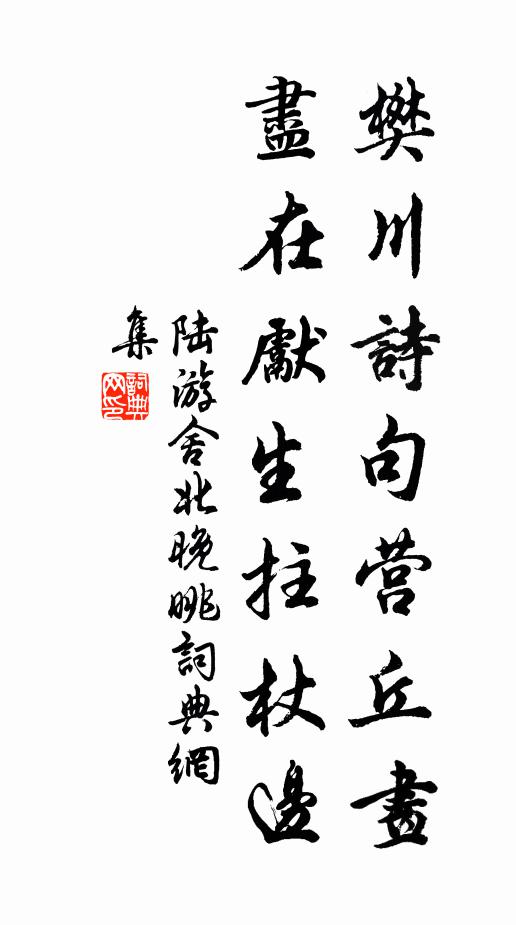 樊川詩句营丘畫
盡在獻生拄杖邊
陆游舍北晚眺詞典網
集
詞典网印